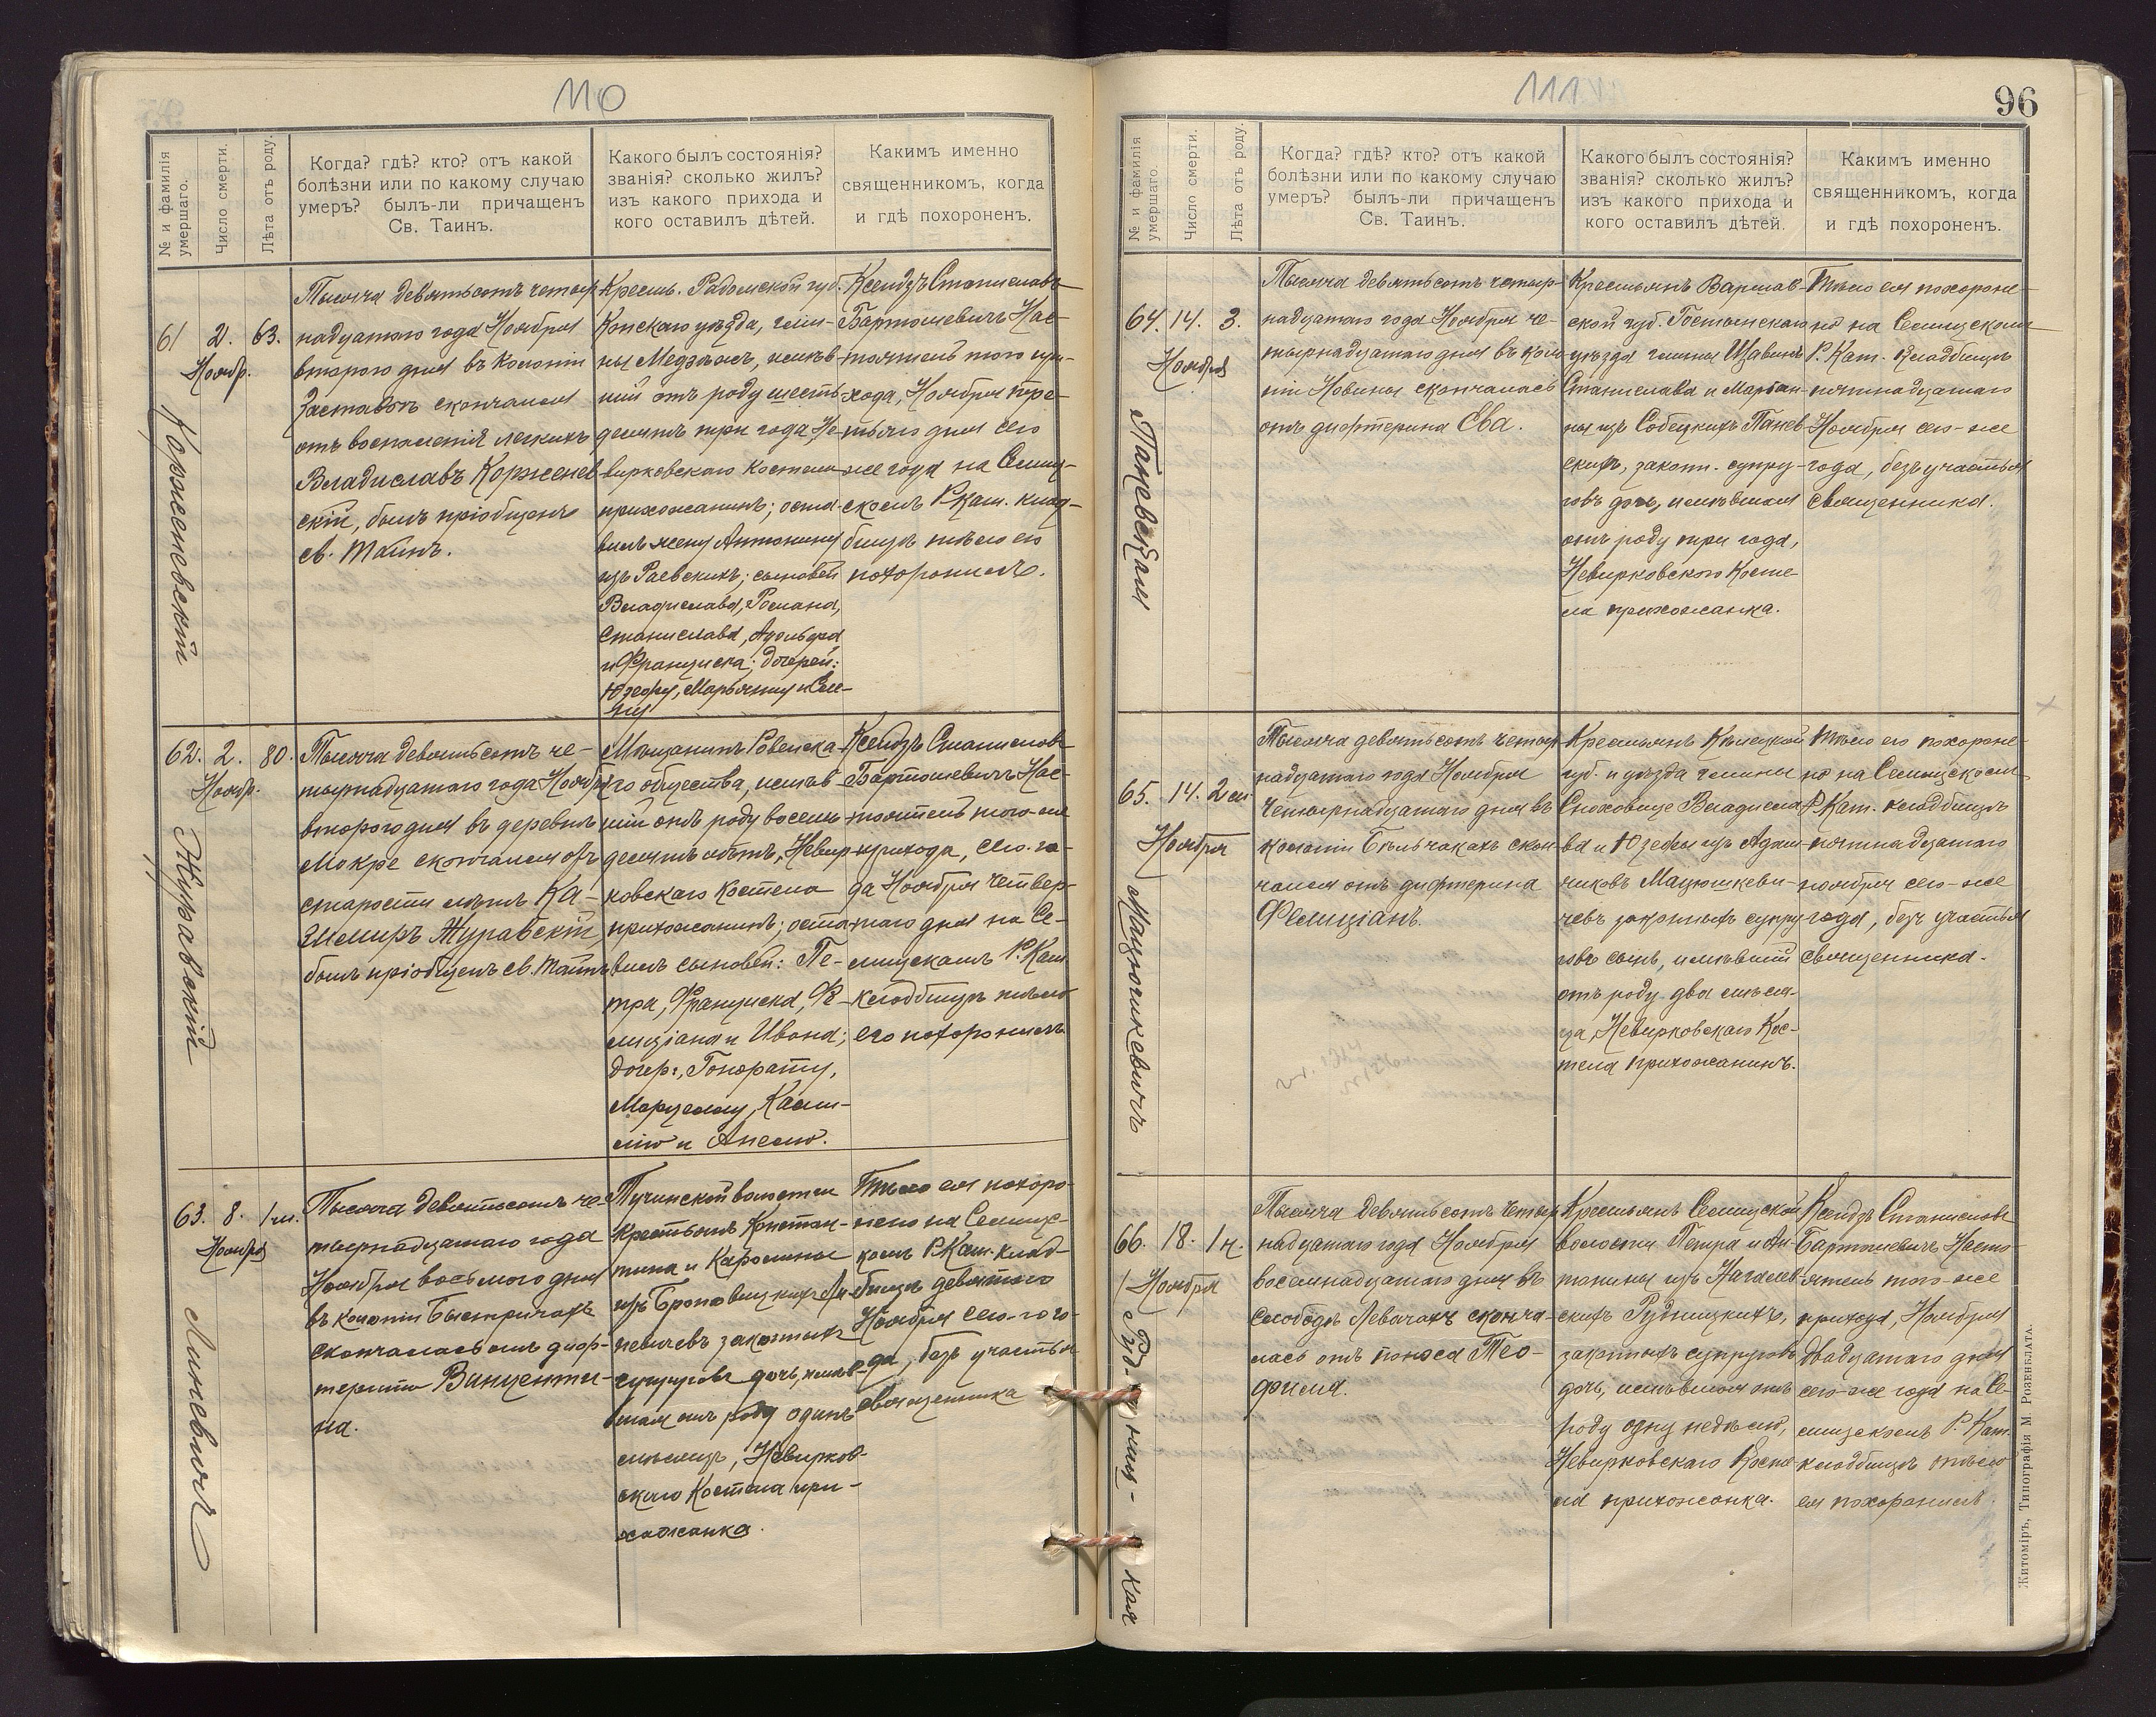 110
№ и фамилія умершаго.
Число смерти.
Лѣта отъ роду.
Когда? гдѣ? кто? отъ какой
болѣзни или по какому случаю
умеръ? былъ-ли причащенъ
Св. Таинъ.
Какого былъ состоянія?
званія? сколько жилъ?
изъ какого прихода и
кого оставилъ дѣтей.
Какимъ именно
священникомъ, когда
и гдѣ похороненъ.
61
2.
Ноябр.
63.
Корженевскій
Тысяча девятьсотъ четыр-
надцатаго года Ноября
второго дня въ колоніи
Заставъ скончался
отъ воспаленія легкихъ
Владиславъ Корженев-
скій, былъ пріобщенъ
св. Таинъ.
Крестьян. Радомской губ.
Конскаго уѣзда, гми-
ны Медзежъ, имѣв-
шій отъ роду шесть-
десятъ три года Не-
вирковскаго костела
прихожанинъ; оста-
вилъ жену Антонину
изъ Раевскихъ; сыновей
Владислава, Романа,
Станислава, Адольфа
и Франциска; дочерей:
Юзефу, Марьянну и Еле-
ну
Ксендзъ Станиславъ
Бартошевичъ Нас-
тоятель того при-
хода, Ноября тре-
тьяго дня сего
же года на Селищ-
скомъ Р.Кат. клад-
бищѣ тѣло его
похоронилъ.
62.
2.
Ноябр.
80.
Журавскій
Тысяча девятьсотъ че-
тырнадцатаго года Ноября
второго дня въ деревнѣ
Мокре скончался отъ
старости лѣтъ Ка-
зимиръ Журавскій,
былъ пріобщенъ св. Таинъ
Мѣщанинъ Ровенска-
го общества, имѣв-
шій отъ роду восемь-
десятъ лѣтъ, Невир-
ковскаго костела
прихожанинъ; оста-
вилъ сыновей: Пе-
тра, Франциска, Фе-
лиціана и Ивана;
дочер., Гонорату,
Марцелину, Ками-
лію и Анелю.
Ксендзъ Станиславъ
Бартошевичъ Нас-
тоятель того-же
прихода, сего-го-
да Ноября четвер-
таго дня на Се-
лищскомъ Р.Кат.
кладбищѣ тѣло
его похоронилъ
63.
8.
Ноября
1 м.
Линевичъ
Тысяча девятьсотъ че-
тырнадцатаго года
Ноября восьмого дня
въ колоніи Быстричахъ
скончалась отъ диф-
терита Винценти-
на.
Тучинской волости
крестьянъ Констан-
тина и Каролины
изъ Броновицкихъ Ли-
невичевъ законныхъ
супруговъ дочь, имѣв-
шая отъ роду одинъ
мѣсяцъ, Невирков-
скаго Костела при-
хожанка.
Тѣло ея похоро-
нено на Селищс-
комъ Р.Кат. клад-
бищѣ девятаго
Ноября сего-го-
да, безъ участья
священника
111
96
№ и фамилія умершаго.
Число смерти.
Лѣта отъ роду.
Когда? гдѣ? кто? отъ какой
болѣзни или по какому случаю
умеръ? былъ-ли причащенъ
Св. Таинъ.
Какого былъ состоянія?
званія? сколько жилъ?
изъ какого прихода и
кого оставилъ дѣтей.
Какимъ именно
священникомъ, когда
и гдѣ похороненъ.
64.
14.
Ноября
3.
Паневская
Тысяча девятьсотъ четыр-
надцатаго года Ноября че-
тырнадцатаго дня въ коло-
ніи Новины скончалась
отъ дифтерита Ева.
Крестьянъ Варшав-
ской губ. Гостынскаго
уѣзда гмины Щавинъ
Станислава и Марьян-
ны изъ Собецкихъ Панев-
скихъ, законн. супру-
говъ дочь, имѣвшая
отъ роду три года,
Невирковскаго Косте-
ла прихожанка.
Тѣло ея похороне-
но на Селищскомъ
Р. Кат. Кладбищѣ
пятнадцатаго
Ноября сего-же
года, безъ участья
священника.
65.
14.
Ноября
2 м.
Мацюшкевичъ
Тысяча девятьсотъ четыр-
надцатаго года Ноября
четырнадцатаго дня въ
колоніи Бѣльчакахъ скон-
чался отъ дифтерита
Фелиціанъ.
Крестьянъ Кѣлецкой
губ. и уѣзда гмины
Сноховице Владисла-
ва и Юзефы изъ Адам-
чиковъ Мацюшкеви-
чевъ законныхъ супру-
говъ сынъ, имѣвшій
отъ роду два мѣся-
ца, Невирковскаго Кос-
тела прихожанинъ.
Тѣло его похороне-
но на Селищскомъ
Р.Кат. кладбищѣ
пятнадцатаго
ноября сего-же
года, безъ участья
священника.
66.
18.
Ноября
1 н.
Рудницкая
Тысяча девятьсотъ четыр-
надцатаго года Ноября
восемнадцатаго дня въ
слободѣ Левачахъ сконча-
лась отъ поноса Тео-
фила.
Крестьянъ Селищской
волости Петра и Ан-
тонины изъ
Рудницкихъ,
законныхъ супруговъ
дочь, имѣвшая отъ
роду одну недѣлю,
Невирковскаго Косте-
ла прихожанка.
Ксендзъ Станиславъ
Бартошевичъ Насто-
ятель того-же
прихода, Ноября
двадцатаго дня
сего-же года на Се-
лищскомъ Р. Кат.
кладбищѣ тѣло
ея похоронилъ.
Житоміръ, Типографія М. Розенблата.